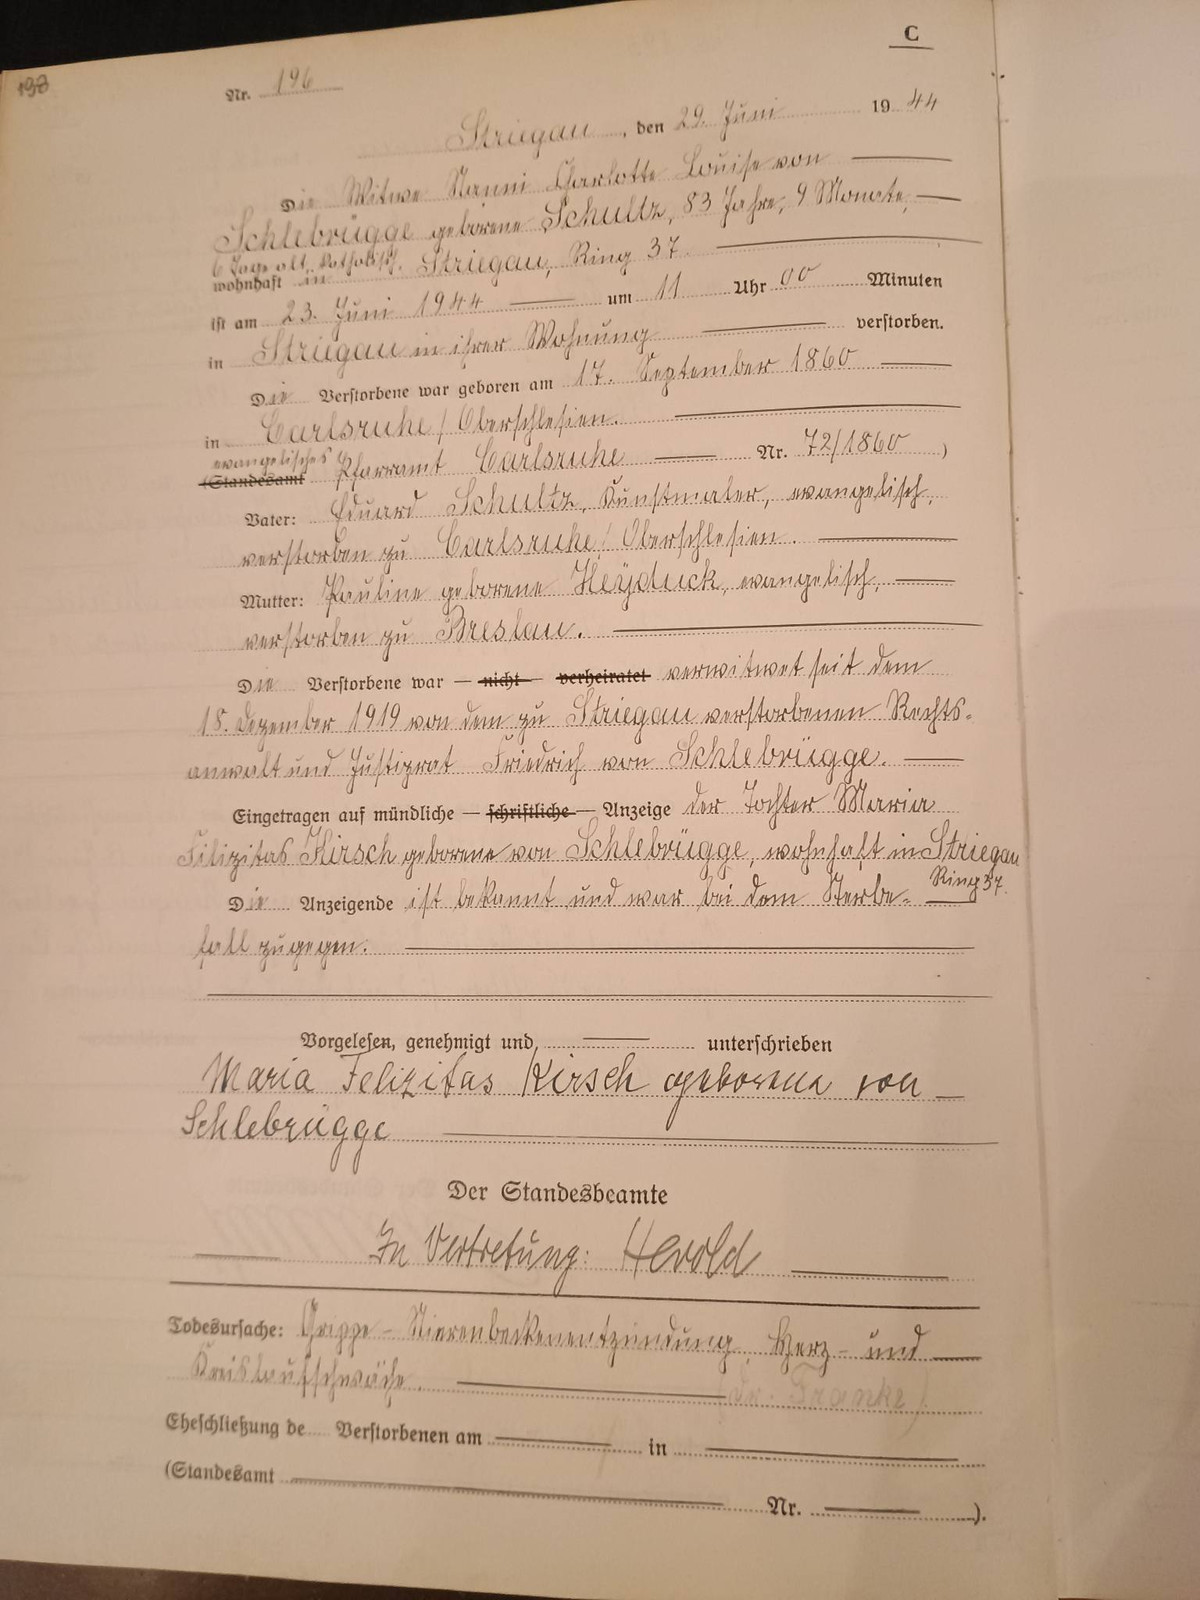 C
198
Nr. 196
Striegau, den 29. Juni 1944
Die Witwe Nanni Charlotte Louise von
Schlebrügge geborene Schultz, 83 Jahre, 9 Monate,
6 Tage alt, katholisch.
wohnhaft in Striegau, Ring 37.
ist am 23. Juni 1944 um 11 Uhr 00 Minuten
in Striegau in ihrer Wohnung verstorben.
Die Verstorbene war geboren am 17. September 1860
in Carlsruhe / Oberschlesien.
evangelisches
(Standesamt Pfarramt Carlsruhe Nr. 72/1860)
Vater: Eduard Schultz, Kunstmaler, evangelisch,
verstorben zu Carlsruhe / Oberschlesien.
Mutter: Pauline geborene Heyduck, evangelisch,
verstorben zu Breslau.
Die Verstorbene war — nicht — verheiratet verwitwet seit dem
18. Dezember 1919 von dem zu Striegau verstorbenen Rechts-
anwalt und Justizrat Friedrich von Schlebrügge.
Eingetragen auf mündliche — schriftliche — Anzeige der Tochter Maria
Filizitas Kirsch geborene von Schlebrügge, wohnhaft in Striegau
Ring 37.
Die Anzeigende ist bekannt und war bei dem Sterbe-
fall zugegen.
Vorgelesen, genehmigt und unterschrieben
Maria Felizitas Kirsch geborene von
Schlebrügge
Der Standesbeamte
In Vertretung: Herold
Todesursache: Grippe - Nierenbeckenentzündung, Herz- und
Kreislaufschwäche. (Dr. Franke)
Eheschließung de Verstorbenen am in
(Standesamt Nr. ).